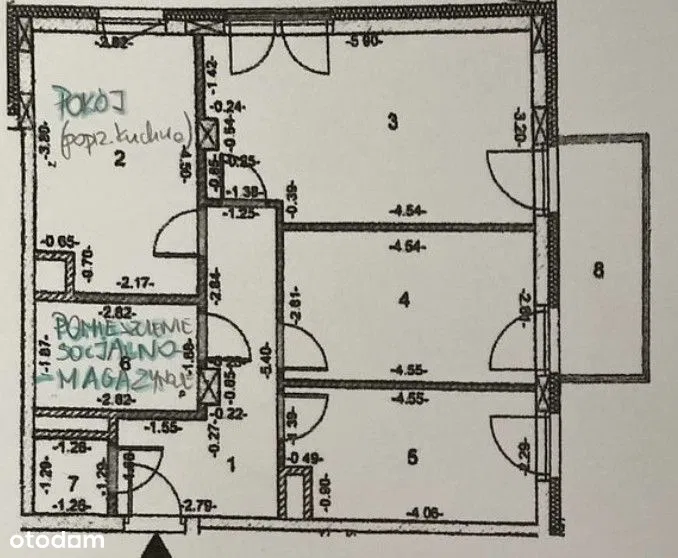 -2.82-
-5.90-
-1.42-
POKÓJ
(poprz. kuchnia)
-0.24-
-0.54-
3
-3.20-
-3.80-
2
-4.50-
-0.85-
-1.38-
-1.25-
-0.39-
-4.54-
-0.65-
-0.70-
-4.54-
8
-2.17-
-2.84-
-2.61-
4
-2.82-
POMIESZCZENIE
SOCJALNO-
-MAGAZYNOWE
-1.87-
6
-1.88-
-5.40-
-4.55-
-2.82-
-0.85-
-4.55-
-0.22-
-1.55-
-0.27-
-1.39-
-1.26-
-1.29-
7
-1.29-
1
-0.49-
5
-2.29-
-0.90-
-1.26-
-2.79-
-4.06-
otodom